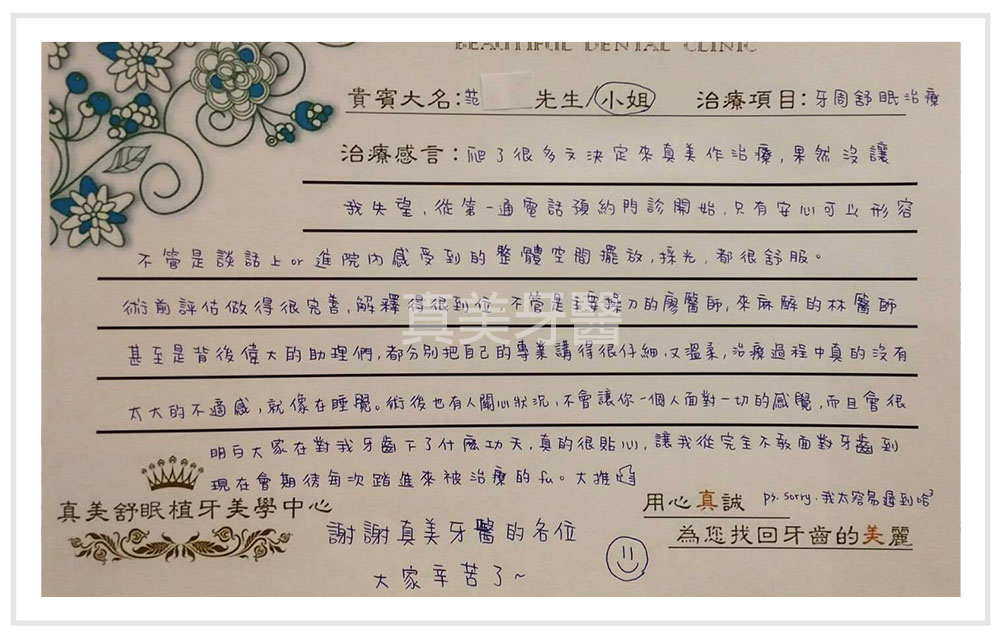 BEAUTIFUL DENTAL CLINIC
貴賓大名：范 先生/小姐 治療項目：牙周舒眠治療
治療感言：爬了很多文決定來真美作治療，果然沒讓
我失望，從第一通電話預約門診開始，只有安心可以形容
不管是談話上or進院內感受到的整體空間擺放，採光，都很舒服。
術前評估做得很完善，解釋得很到位，不管是主要操刀的廖醫師，來麻醉的林醫師
真美牙醫
甚至是背後偉大的助理們，都分別把自己的專業講得很仔細，又溫柔，治療過程中真的沒有
太大的不適感，就像在睡覺。術後也有人關心狀況，不會讓你一個人面對一切的感覺，而且會很
明白大家在對我牙齒下了什麼功夫，真的很貼心，讓我從完全不敢面對牙齒到
現在會期待每次踏進來被治療的fu。大推
真美舒眠植牙美學中心
用心真誠
ps. sorry.我太容易遲到哈
為您找回牙齒的美麗
謝謝真美牙醫的各位
大家辛苦了~